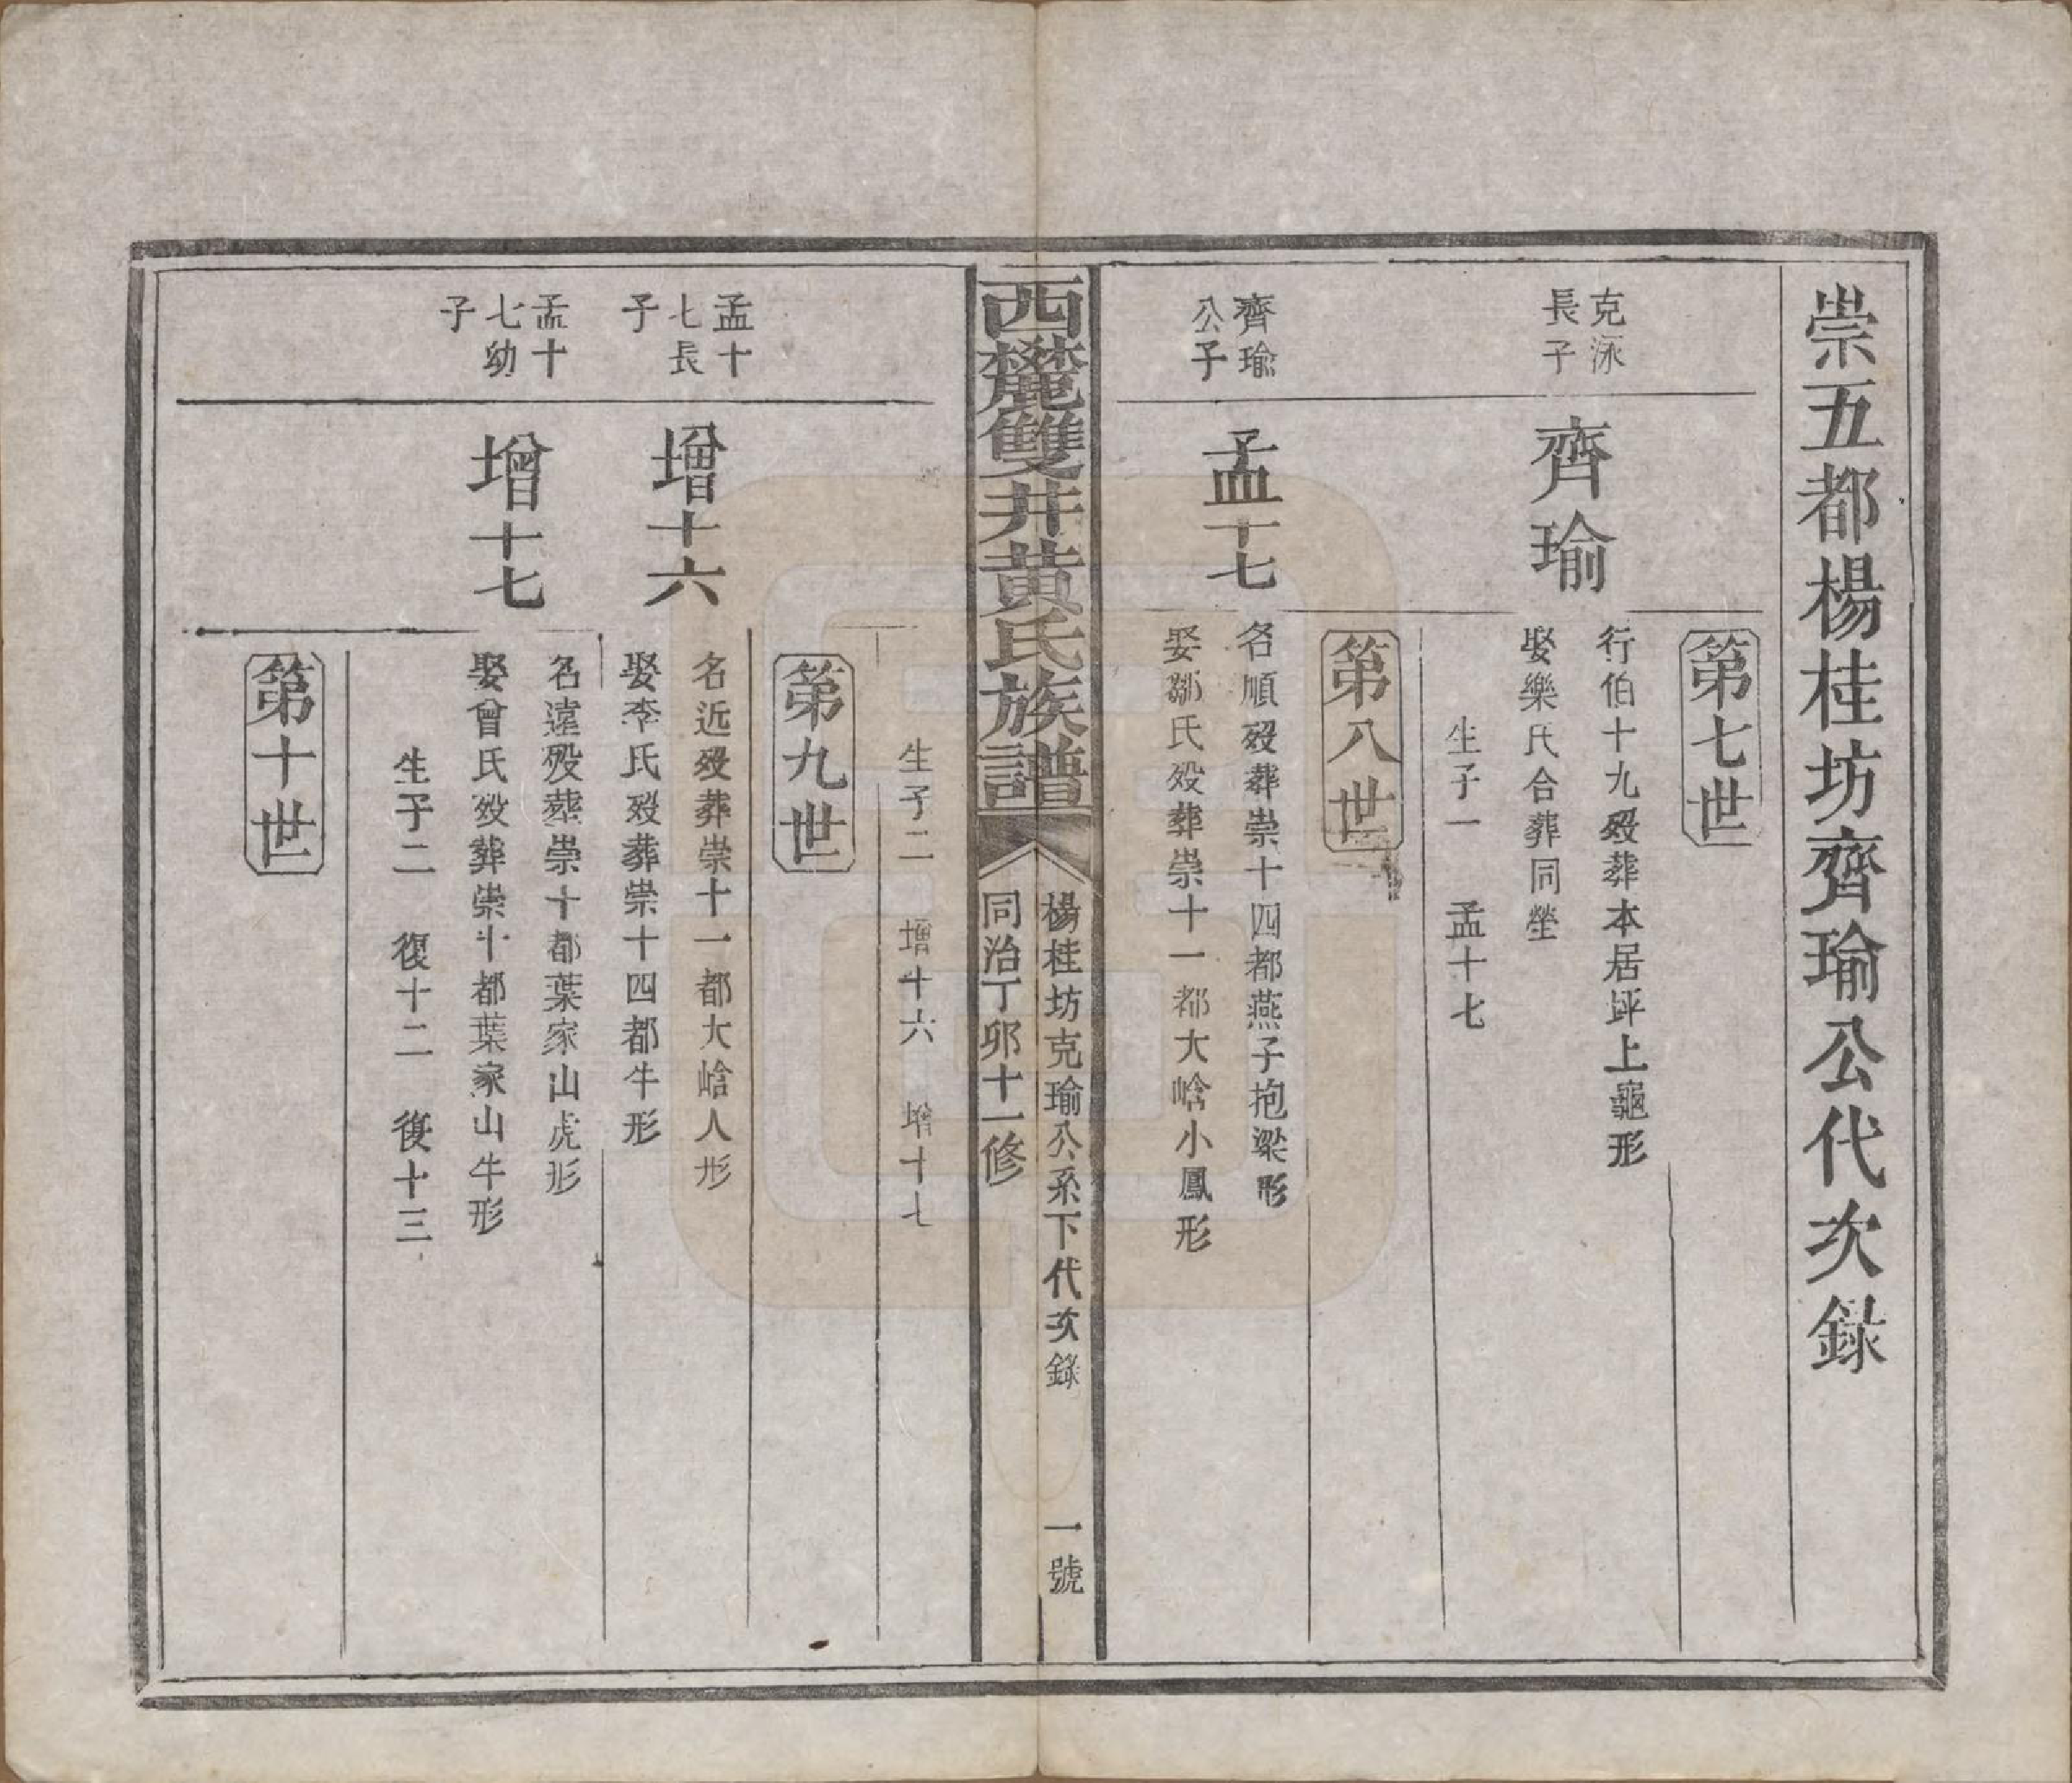 崇五都楊桂坊齊瑜公代次錄
第七世
克泳
長子
齊瑜
行伯十九殁葬本居坪上龜形
娶樂氏合葬同塋
生子一 孟十七
第八世
齊瑜
公子
孟十七
名順殁葬崇十四都燕子抱梁形
娶鄒氏殁葬崇十一都大嵱小鳳形
西麓雙井黃氏族譜
楊桂坊克瑜公系下代次錄 一號
同治丁卯十一修
生子二 增十六 增十七
第九世
孟十
七長
子
增十六
名近殁葬崇十一都大嵱人形
娶李氏殁葬崇十四都牛形
孟十
七幼
子
增十七
名遠殁葬崇十都葉家山虎形
娶曾氏殁葬崇十都葉家山牛形
生子二 復十二 復十三
第十世